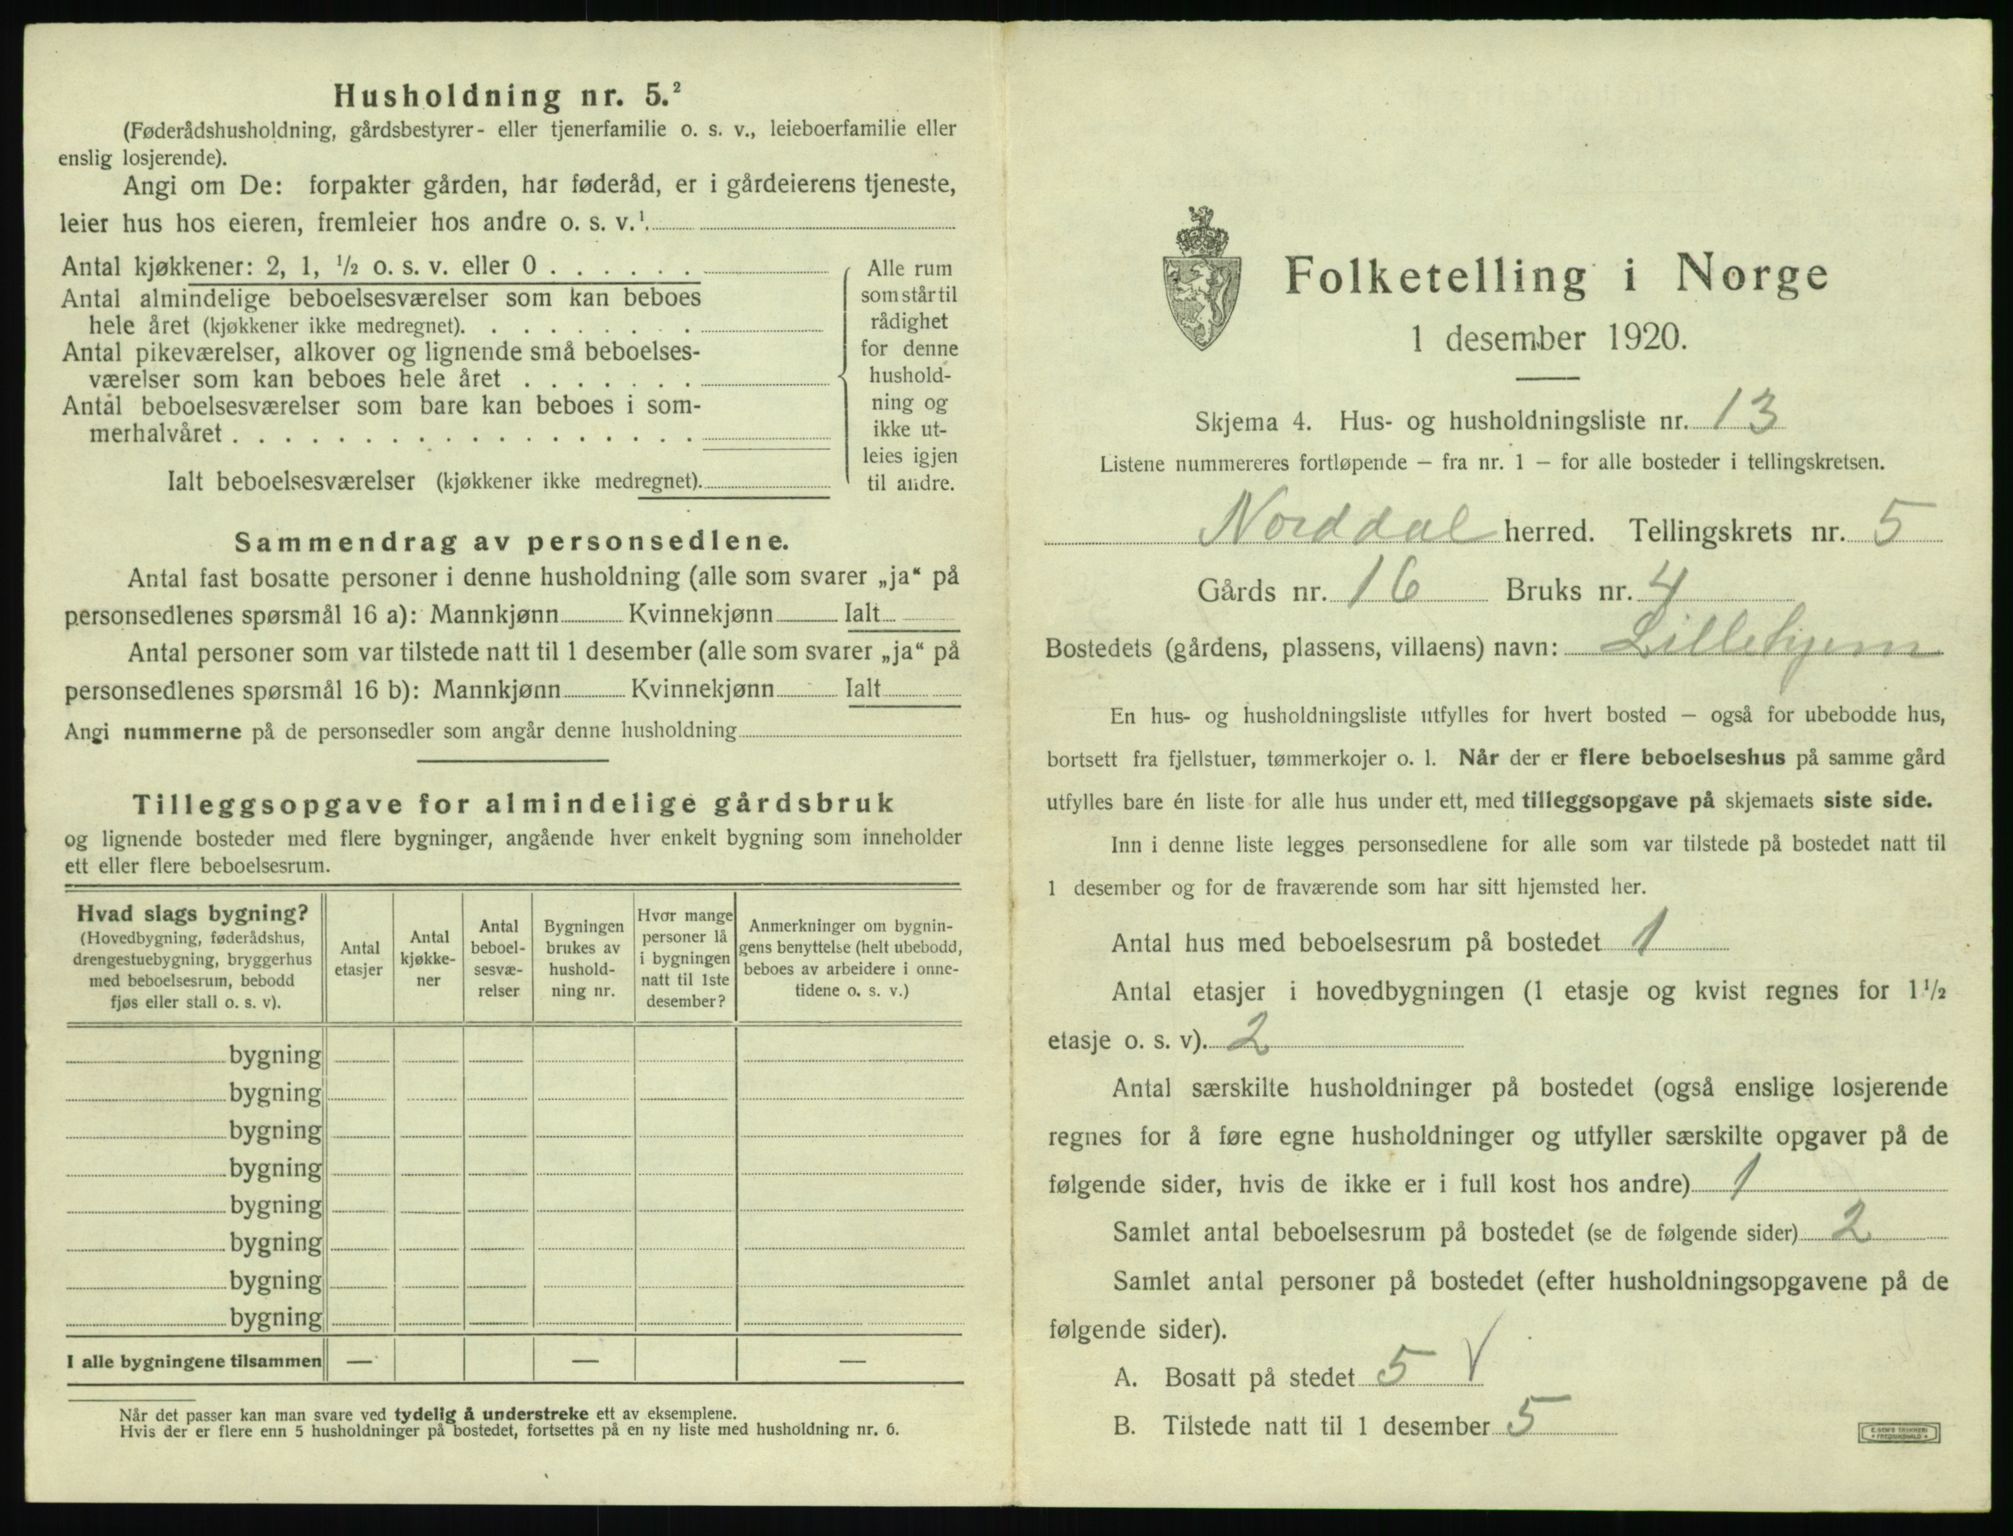 Husholdning nr. 5.²
(Føderådshusholdning, gårdsbestyrer- eller tjenerfamilie o. s. v., leieboerfamilie eller
enslig losjerende).
Angi om De: forpakter gården, har føderåd, er i gårdeierens tjeneste,
leier hus hos eieren, fremleier hos andre o. s. v.¹
Antal kjøkkener: 2, 1, ½ o. s. v. eller 0 . . . . . .
Antal almindelige beboelsesværelser som kan beboes
hele året (kjøkkener ikke medregnet). . . . . . . . .
Antal pikeværelser, alkover og lignende små beboelses-
værelser som kan beboes hele året . . . . . . .
Antal beboelsesværelser som bare kan beboes i som-
merhalvåret . . . . . . . . . . . . . . . . . .
Ialt beboelsesværelser (kjøkkener ikke medregnet).
Alle rum
som står til
rådighet
for denne
hushold-
ning og
ikke ut-
leies igjen
til andre.
Sammendrag av personsedlene.
Antal fast bosatte personer i denne husholdning (alle som svarer „ja“ på
personsedlenes spørsmål 16 a): Mannkjønn Kvinnekjønn Ialt
Antal personer som var tilstede natt til 1 desember (alle som svarer „ja“ på
personsedlenes spørsmål 16 b): Mannkjønn Kvinnekjønn Ialt
Angi nummerne på de personsedler som angår denne husholdning
Tilleggsopgave for almindelige gårdsbruk
og lignende bosteder med flere bygninger, angående hver enkelt bygning som inneholder
ett eller flere beboelsesrum.
Hvad slags bygning?
(Hovedbygning, føderådshus,
drengestuebygning, bryggerhus
med beboelsesrum, bebodd
fjøs eller stall o. s. v).
Antal
etasjer
Antal
kjøkke-
ner
Antal
beboel-
sesvæ-
relser
Bygningen
brukes av
hushold-
ning nr.
Hvor mange
personer lå
i bygningen
natt til 1ste
desember?
Anmerkninger om bygnin-
gens benyttelse (helt ubebodd,
beboes av arbeidere i onne-
tidene o. s. v.)
bygning
bygning
bygning
bygning
bygning
bygning
bygning
bygning
I alle bygningene tilsammen — — —
Når det passer kan man svare ved tydelig å understreke ett av eksemplene.
Hvis der er flere enn 5 husholdninger på bostedet, fortsettes på en ny liste med husholdning nr. 6.
Folketelling i Norge
1 desember 1920.
Skjema 4. Hus- og husholdningsliste nr. 13
Listene nummereres fortløpende — fra nr. 1 — for alle bosteder i tellingskretsen.
Norddal herred. Tellingskrets nr. 5
Gårds nr. 16 Bruks nr. 4
Bostedets (gårdens, plassens, villaens) navn: Lillehjem
En hus- og husholdningsliste utfylles for hvert bosted — også for ubebodde hus,
bortsett fra fjellstuer, tømmerkojer o. l. Når der er flere beboelseshus på samme gård
utfylles bare én liste for alle hus under ett, med tilleggsopgave på skjemaets siste side.
Inn i denne liste legges personsedlene for alle som var tilstede på bostedet natt til
1 desember og for de fraværende som har sitt hjemsted her.
Antal hus med beboelsesrum på bostedet 1
Antal etasjer i hovedbygningen (1 etasje og kvist regnes for 1½
etasje o. s. v). 2
Antal særskilte husholdninger på bostedet (også enslige losjerende
regnes for å føre egne husholdninger og utfyller særskilte opgaver på de
følgende sider, hvis de ikke er i full kost hos andre) 1
Samlet antal beboelsesrum på bostedet (se de følgende sider) 2
Samlet antal personer på bostedet (efter husholdningsopgavene på de
følgende sider).
A. Bosatt på stedet 5 V
B. Tilstede natt til 1 desember 5